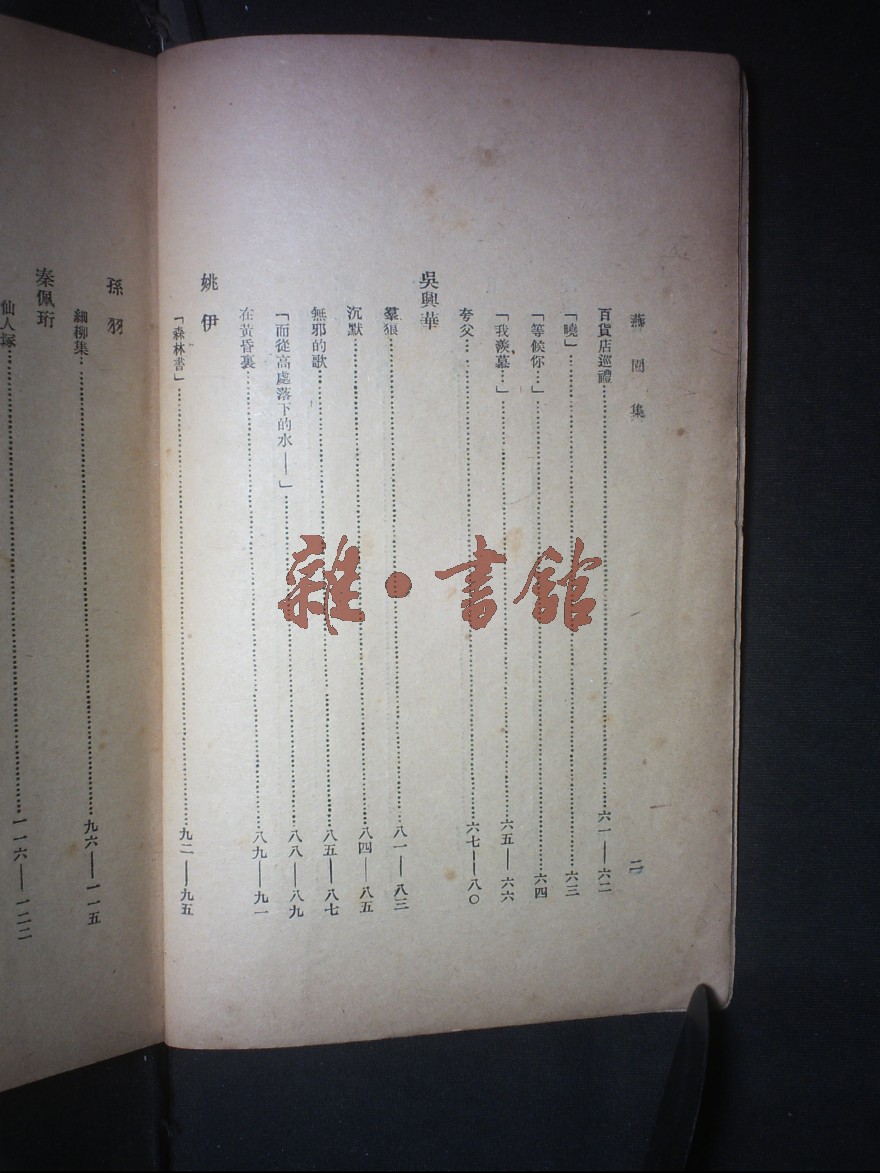 燕園集 二
百貨店巡禮……六一——六二
「曉」……六三
「等候你…」……六四
「我羨慕…」……六五——六六
夸父……六七——八〇
吳興華
羣狼……八一——八三
沉默……八四——八五
無邪的歌……八五——八七
「而從高處落下的水——」……八八——八九
在黃昏裏……八九——九一
姚伊
「森林書」……九二——九五
孫羽
細柳集……九六——一一五
秦佩珩
仙人塚……一一六——一二二
雜·書館